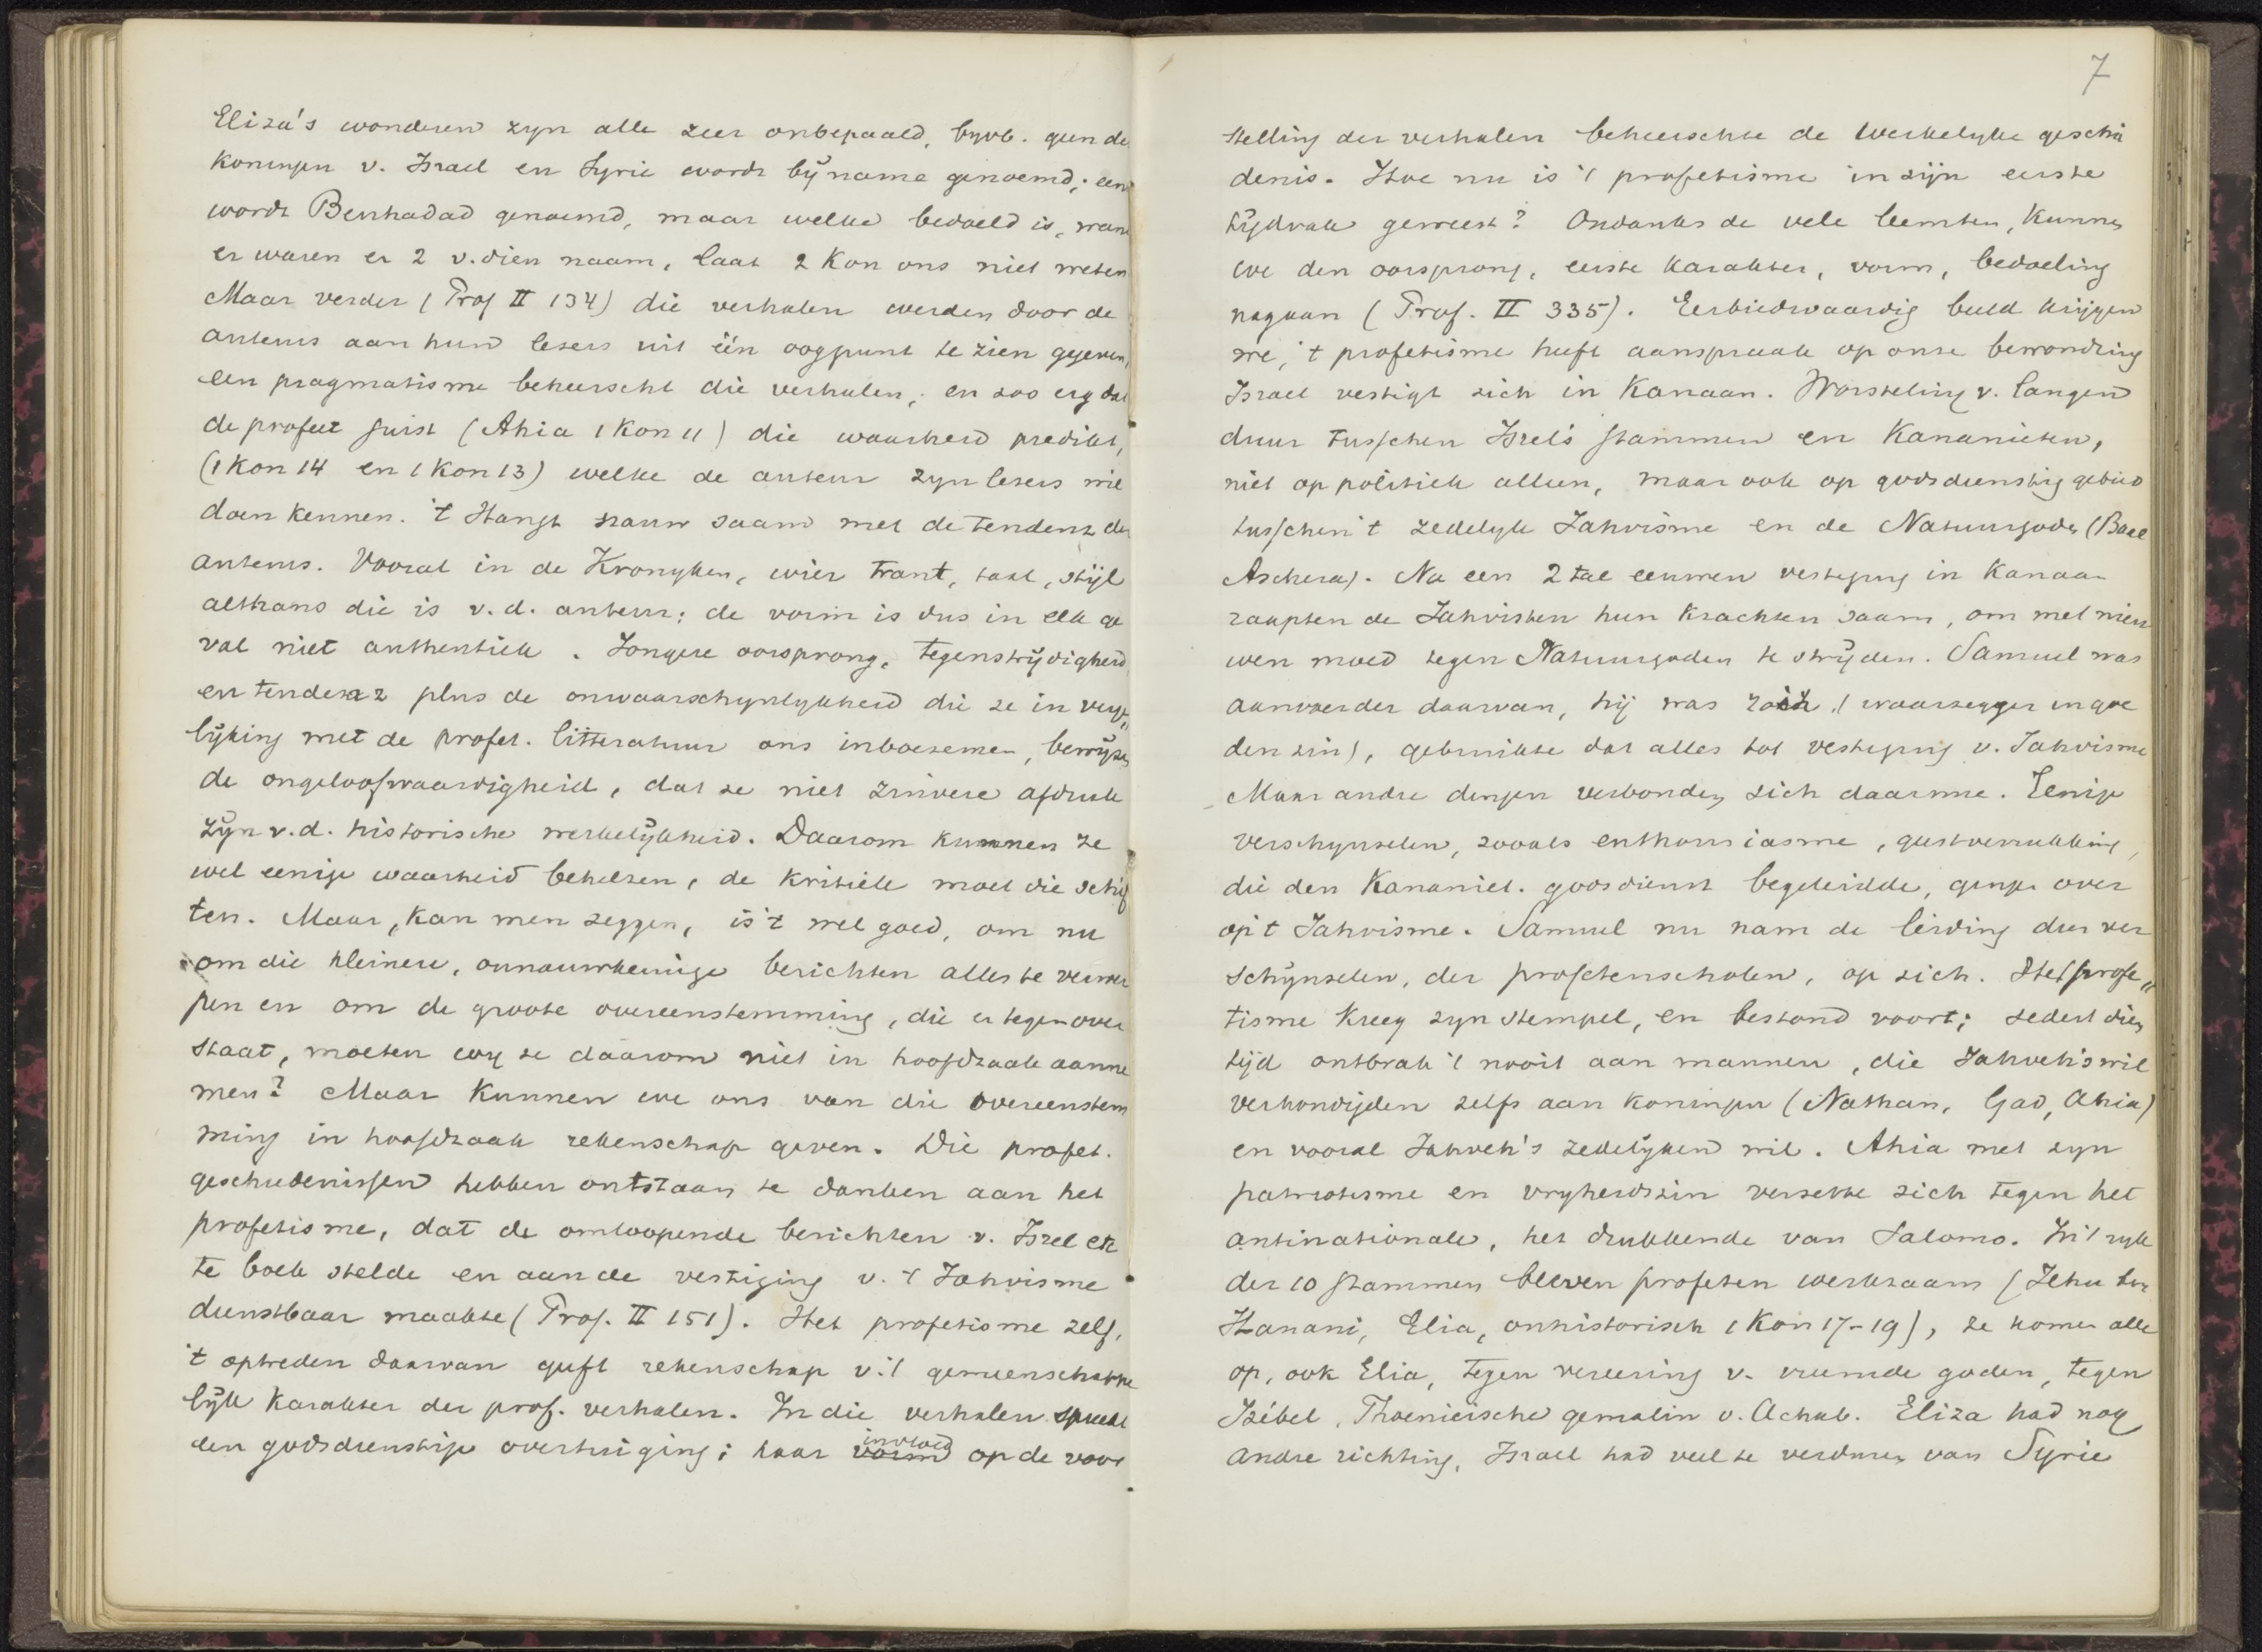 Eliza's wonderen zyn alle zeer onbepaald, byvb. geen de
koningen v. Israel en Syrie wordt bij name genoemd; een
wordt Benhadad genoemd, maar welke bedoeld is, want
er waren er 2 v. dien naam, laat 2 Kon ons niet weten
Maar verder (Prof II 134) die verhalen werden door de
auteurs aan hun lezers uit één oogpunt te zien gegeven,
een pragmatisme beheerscht die verhalen, en zoo erg dat
de profeet juist (Ahia 1 Kon 11) die waarheid predikt,
(1 Kon 14 en 1 Kon 13) welke de auteur zyn lezers wil
doen kennen. 't Hangt nauw saam met de tendenz der
auteurs. Vooral in de Kronyken, wier trant, taal, stijl
althans die is v. d. auteur; de vorm is dus in elk ge
val niet authentiek. Jongere oorsprong, tegenstrijdigheid
en tendenz plus de onwaarschynlykheid die ze in verge„
lijking met de profet. litteratuur ons inboezemen, bewijzen
de ongeloofwaardigheid, dat ze niet zuivere afdruk
zijn v. d. historische werkelijkheid. Daarom kunnen ze
wel eenige waarheid behelzen, de kritiek moet die schif
ten. Maar, kan men zeggen, is 't wel goed, om nu
om die kleinere, onnauwkeurige berichten alles te verwer
pen en om de groote overeenstemming, die er tegenover
staat, moeten wy ze daarom niet in hoofdzaak aanne
men? Maar kunnen we ons van die overeenstem
ming in hoofdzaak rekenschap geven. Die profet.
geschiedenissen hebben ontstaan te danken aan het
profetisme, dat de omloopende berichten v. Isrel etc
te boek stelde en aan de vestiging v. 't Jahvisme
dienstbaar maakte (Prof. II 151). Het profetisme zelf,
't optreden daarvan geeft rekenschap v. 't gemeenschappe
lijk karakter der prof. verhalen. In die verhalen spreekt
een godsdienstige overtuiging; haar vorm invloed op de voor
7
stelling der verhalen beheerschte de werkelyke geschie
denis. Hoe nu is 't profetisme in zijn eerste
tijdvak geweest? Ondanks de vele leemten, kunnen
we den oorsprong, eerste karakter, vorm, bedoeling
nagaan (Prof. II 335). Eerbiedwaardig beeld krijgen
we, 't profetisme heeft aanspraak op onze bewondring
Israel vestigt zich in Kanaan. Worsteling v. langen
duur tusschen Isrels stammen en Kananieten,
niet op politiek alleen, maar ook op godsdienstig gebied
tusschen 't zedelyk Jahvisme en de Natuurgoden (Baal
Aschera). Na een 2 tal eeuwen vestiging in Kanaan
raapten de Jahvisten hun krachten saam, om met nieu
wen moed tegen Natuurgoden te strijden. Samuel was
aanvoerder daarvan, hij was (waarzegger in goe
den zin), gebruikte dat alles tot vestiging v. Jahvisme
Maar andre dingen verbonden zich daarmee. Eenige
verschynselen, zooals enthousiasme, geestverrukking,
die den Kananiet. godsdienst begeleidde, gingen over
op 't Jahvisme. Samuel nu nam de leiding dier ver
schijnselen, der profetenscholen, op zich. Het profe„
tisme kreeg zyn stempel, en bestond voort; sedert dien
tijd ontbrak 't nooit aan mannen, die Jahveh's wil
verkondigden zelfs aan koningen (Nathan, Gad, Ahia)
en vooral Jahveh's zedelijken wil. Ahia met zyn
patriotisme en vryheidszin verzette zich tegen het
antinationale, het drukkende van Salomo. In 't ryk
der 10 stammen bleven profeten werkzaam (Jehu ben
Hanani, Elia, onhistorisch 1 Kon 17-19), ze komen alle
op, ook Elia, tegen vereering v. vreemde goden, tegen
Izébel, Phoenicische gemalin v. Achab. Eliza had nog
andre richting, Israel had veel te verduren van Syrie